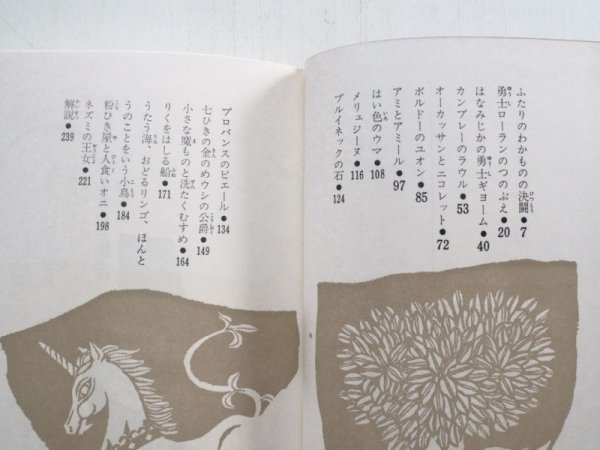 ふたりのわかものの決闘●7
勇士ローランのつのぶえ●20
はなみじかの勇士ギヨーム●40
カンブレーのラウル●53
オーカッサンとニコレット●72
ボルドーのユオン●85
アミとアミール●97
はい色のウマ●108
メリュジーヌ●116
プルイネックの石●124
プロバンスのピエール●134
七ひきの金のめウシの公爵●149
小さな魔ものと洗たくむすめ●164
りくをはしる船●171
うたう海、おどるリンゴ、ほんと
うのことをいう小鳥●184
粉ひき屋と人食いオニ●198
ネズミの王女●221
解説●239